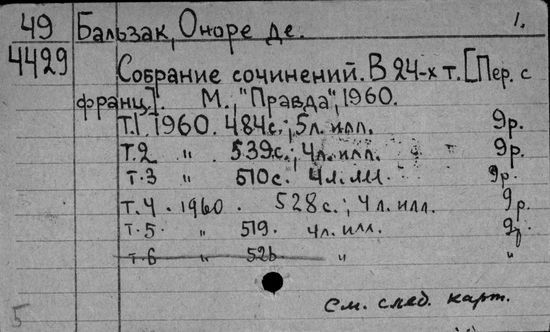 49 Бальзак, Оноре де. 1.
4429 Собрание сочинений. В 24-х т. [Пер. с
франц.]. М., "Правда", 1960.
Т.1. 1960. 484с.; 5л. илл. 9р.
Т.2 " 539с.; 4л. илл. 9р.
Т.3 " 510с. 4л. илл. 9р.
Т.4. 1960. 528с.; 4л. илл. 9р.
Т.5. " 519. 4л. илл. 9р.
Т.6 " 526 " "
См. след. карт.
5